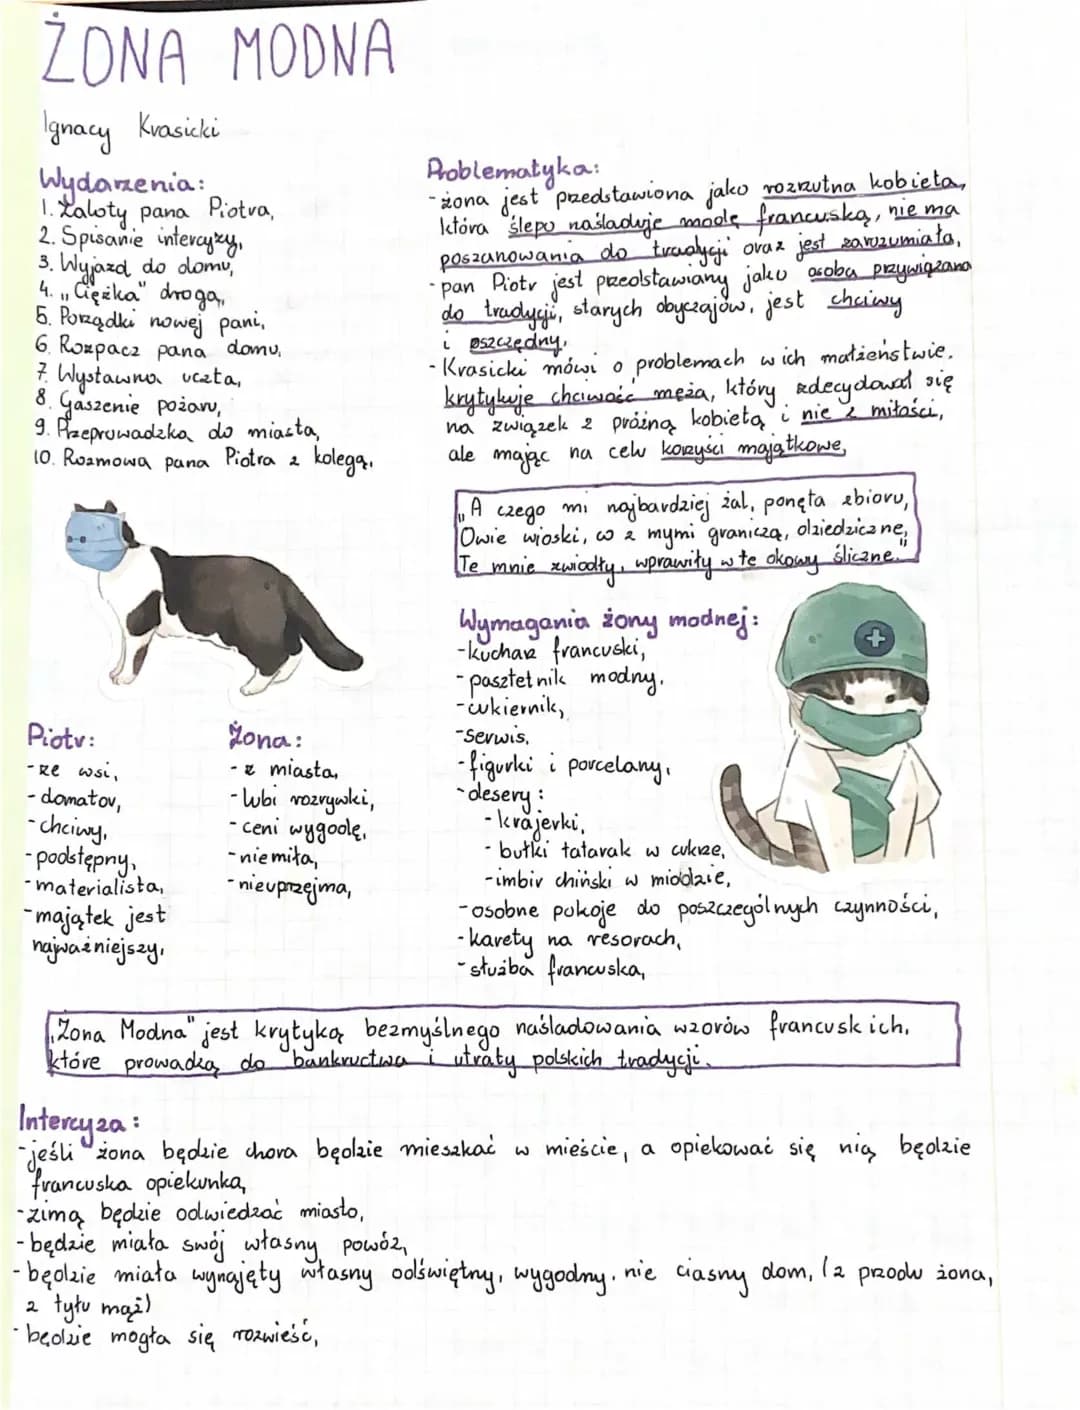 ŻONA MODNA
Ignacy Krasicki
Wydarzenia:
1. Zaloty pana Piotra,
2. Spisanie intercyzy,
3. Wyjazd do domu,
4. „Ciężka" droga,
5. Porządki nowej pani,
6. Rozpacz pana domu,
7. Wystawna uczta,
8. Gaszenie pożaru,
9. Przeprowadzka do miasta,
10. Rozmowa pana Piotra z kolegą.
Problematyka:
- żona jest przedstawiona jako rozrzutna kobieta,
która ślepo naśladuje modę francuską, nie ma
poszanowania do tradycji oraz jest zarozumiała,
- pan Piotr jest przedstawiany jako osoba przywiązana
do tradycji, starych obyczajów, jest chciwy
i oszczędny,
- Krasicki mówi o problemach w ich małżeństwie.
krytykuje chciwość męża, który zdecydował się
na związek z próżną kobietą i nie z miłości,
ale mając na celu korzyści majątkowe,
„A czego mi najbardziej żal, ponęta zbioru,
Owie wioski, co z mymi graniczą, dziedziczne,
Te mnie zwiodły, wprawiły w te okowy śliczne."
Wymagania żony modnej:
- kucharz francuski,
- pasztetnik modny,
- cukiernik,
- serwis,
- figurki i porcelany,
- desery:
- krajerki,
- bułki tatarak w cukrze,
- imbir chiński w miodzie,
- osobne pokoje do poszczególnych czynności,
- karety na resorach,
- służba francuska,
Piotr:
- ze wsi,
- domator,
- chciwy,
- podstępny,
- materialista,
- majątek jest
najważniejszy,
Żona:
- z miasta,
- lubi rozrywki,
- ceni wygodę,
- niemiła,
- nieuprzejma,
„Żona Modna" jest krytyką bezmyślnego naśladowania wzorów francuskich,
które prowadzą do bankructwa i utraty polskich tradycji.
Intercyza:
- jeśli żona będzie chora będzie mieszkać w mieście, a opiekować się nią będzie
francuska opiekunka,
- zimą będzie odwiedzać miasto,
- będzie miała swój własny powóz,
- będzie miała wynajęty własny odświętny, wygodny, nie ciasny dom, (z przodu żona,
z tyłu mąż)
- będzie mogła się rozwieść,